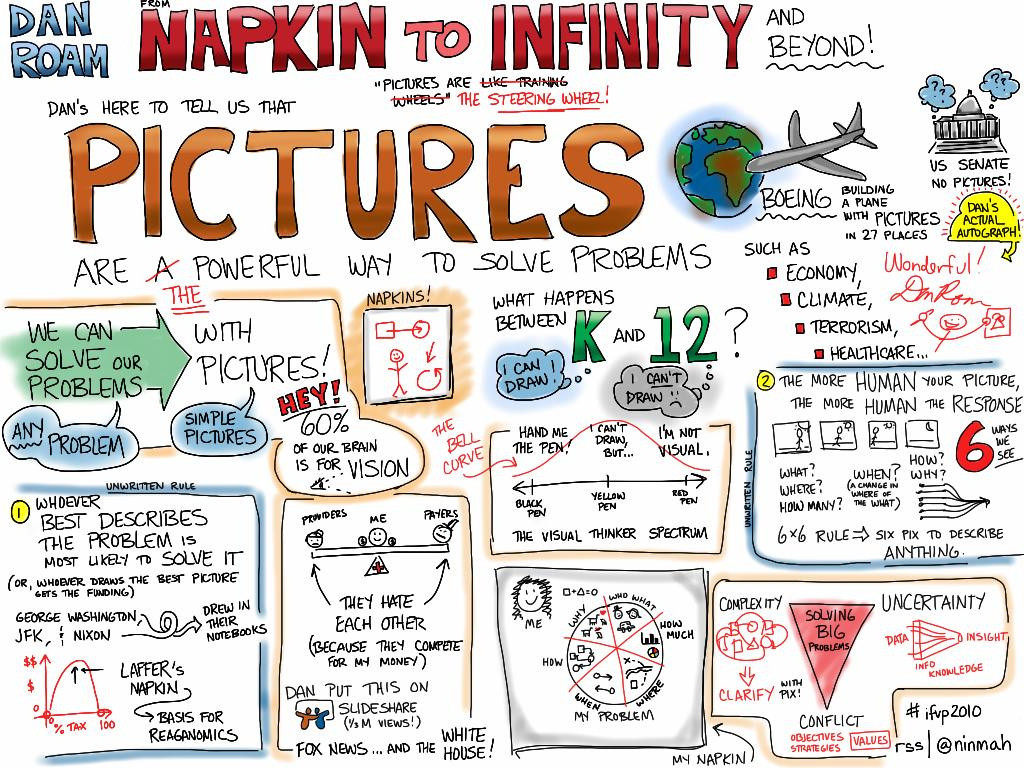 DAN
ROAM
FROM
NAPKIN TO INFINITY
AND
BEYOND!
"PICTURES ARE LIKE TRAINING
WHEELS" THE STEERING WHEEL!
DAN'S HERE TO TELL US THAT
PICTURES
ARE A POWERFUL WAY TO SOLVE PROBLEMS
THE
BOEING
BUILDING
A PLANE
WITH PICTURES
IN 27 PLACES
US SENATE
NO PICTURES!
DAN'S
ACTUAL
AUTOGRAPH!
Wonderful!
Dan Roam
SUCH AS
ECONOMY,
CLIMATE,
TERRORISM,
HEALTHCARE...
WE CAN
SOLVE OUR
PROBLEMS
WITH
PICTURES!
ANY
PROBLEM
SIMPLE
PICTURES
HEY!
60%
OF OUR BRAIN
IS FOR VISION
NAPKINS!
WHAT HAPPENS
BETWEEN K AND 12?
I CAN
DRAW!
I CAN'T
DRAW
THE
BELL
CURVE
HAND ME
THE PEN!
I CAN'T
DRAW,
BUT...
I'M NOT
VISUAL,
BLACK
PEN
YELLOW
PEN
RED
PEN
THE VISUAL THINKER SPECTRUM
UNWRITTEN RULE
2 THE MORE HUMAN YOUR PICTURE,
THE MORE HUMAN THE RESPONSE
6 WAYS
WE
SEE
WHAT?
WHERE?
HOW MANY?
WHEN?
(A CHANGE IN
WHERE OF
THE WHAT)
HOW?
WHY?
6x6 RULE ⇒ SIX PIX TO DESCRIBE
ANYTHING.
UNWRITTEN RULE
1 WHOEVER
BEST DESCRIBES
THE PROBLEM IS
MOST LIKELY TO SOLVE IT
(OR, WHOEVER DRAWS THE BEST PICTURE
GETS THE FUNDING)
GEORGE WASHINGTON,
JFK, & NIXON
DREW IN
THEIR
NOTEBOOKS
$$
$
0
% TAX
100
LAFFER'S
NAPKIN
BASIS FOR
REAGANOMICS
PROVIDERS
ME
PAYERS
THEY HATE
EACH OTHER
(BECAUSE THEY COMPETE
FOR MY MONEY)
DAN PUT THIS ON
SLIDESHARE
(1/3 M VIEWS!)
FOX NEWS... AND THE WHITE
HOUSE!
ME
□+△=○
WHY
WHO WHAT
HOW
MUCH
HOW
WHEN
WHERE
MY PROBLEM
MY NAPKIN
COMPLEXITY
CLARIFY WITH
PIX!
SOLVING
BIG
PROBLEMS
UNCERTAINTY
DATA
INSIGHT
INFO
KNOWLEDGE
CONFLICT
OBJECTIVES
STRATEGIES
VALUES
#ifvp2010
rss | @ninmah